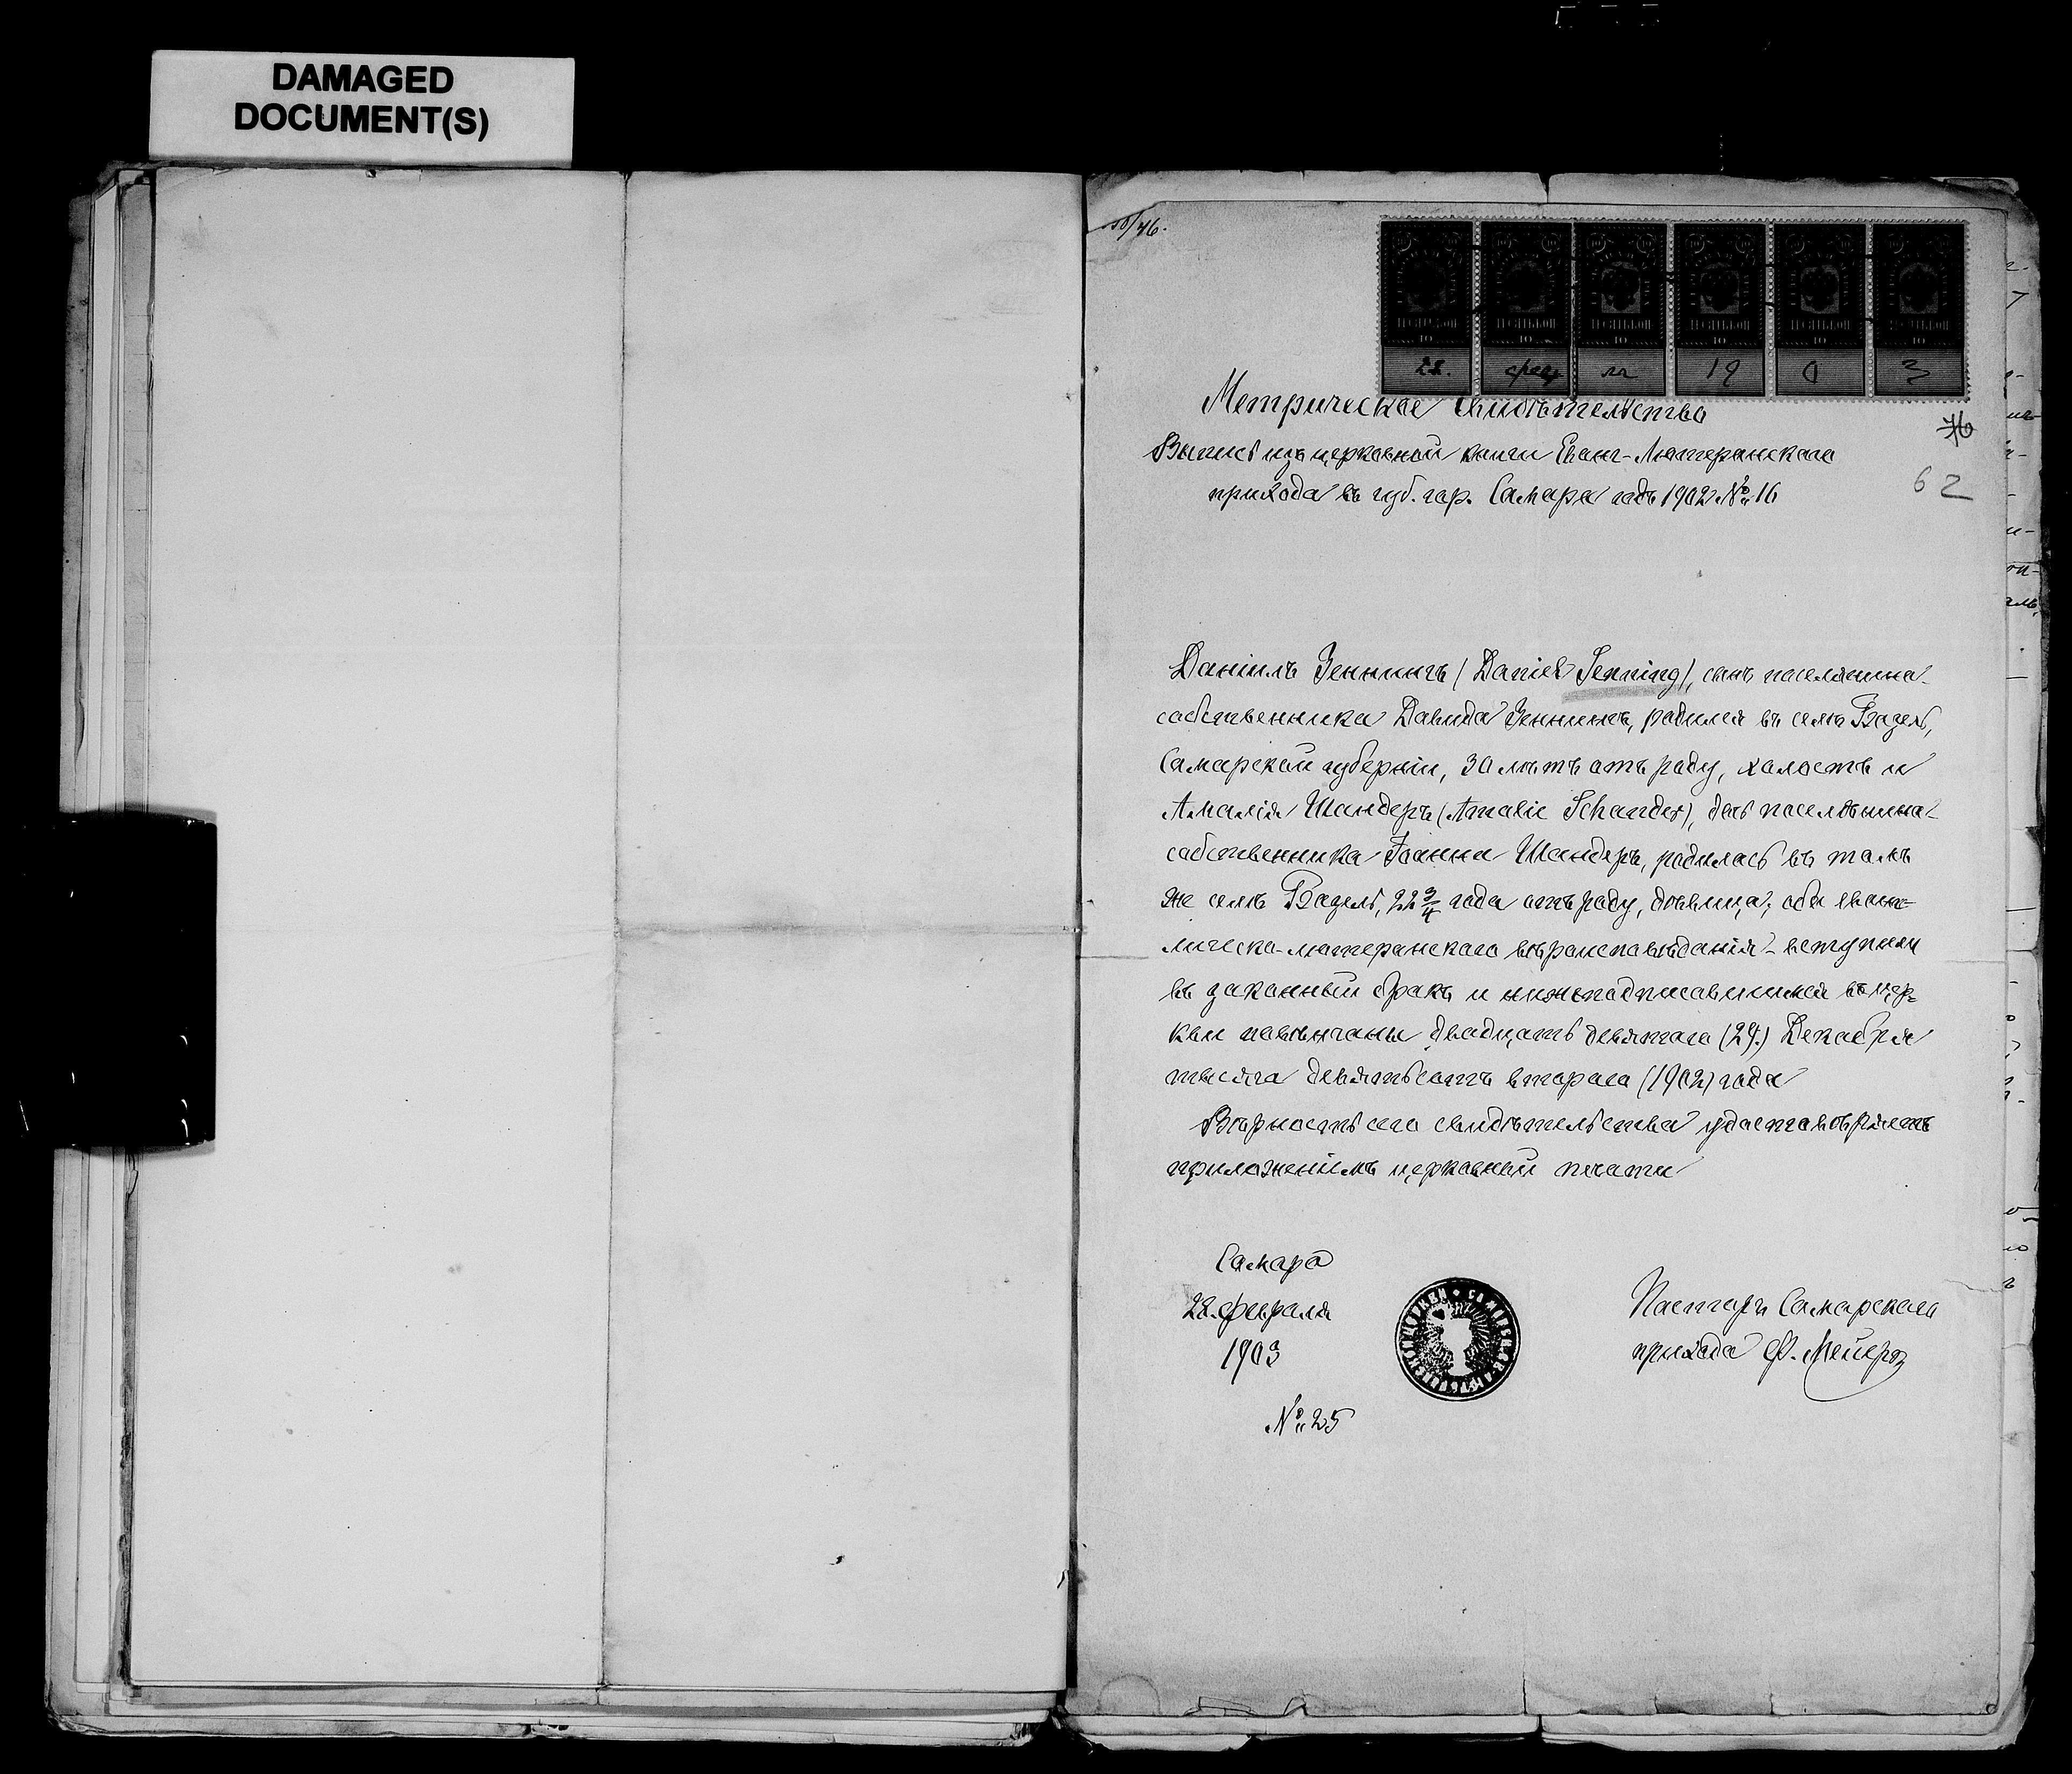 DAMAGED
DOCUMENT(S)
/46.
28. февр ля 19 0 3
Метрическое свидѣтельство
Выпись изъ церковной книги Еванг-Лютеранскаго
прихода въ губ. гор. Самара годъ 1902 № 16
62
Даніилъ Зеннингъ (Daniel Senning), сынъ поселянина-
собственника Давида Зеннингъ, родился въ селѣ Базель,
Самарской губерніи, 30 лѣтъ отъ роду, холостъ и
Амалія Шандеръ (Amalie Schander), дочь поселянина-
собственника Іоанна Шандеръ, родилась въ томъ
же селѣ Базель, 22 3/4 года отъ роду, дѣвица, оба еванге-
лическо-лютеранскаго вѣроисповѣданія - вступили
въ законный бракъ и нижеподписавшимся въ цер-
кви повѣнчаны двадцать девятаго (29.) Декабря
тысяча девятьсотъ второго (1902) года
Вѣрность сего свидѣтельства удостовѣряетъ
приложеніемъ церковной печати
Самара
28. февраля
1903
№ 25
Пасторъ Самарскаго
прихода Ф. Мейеръ